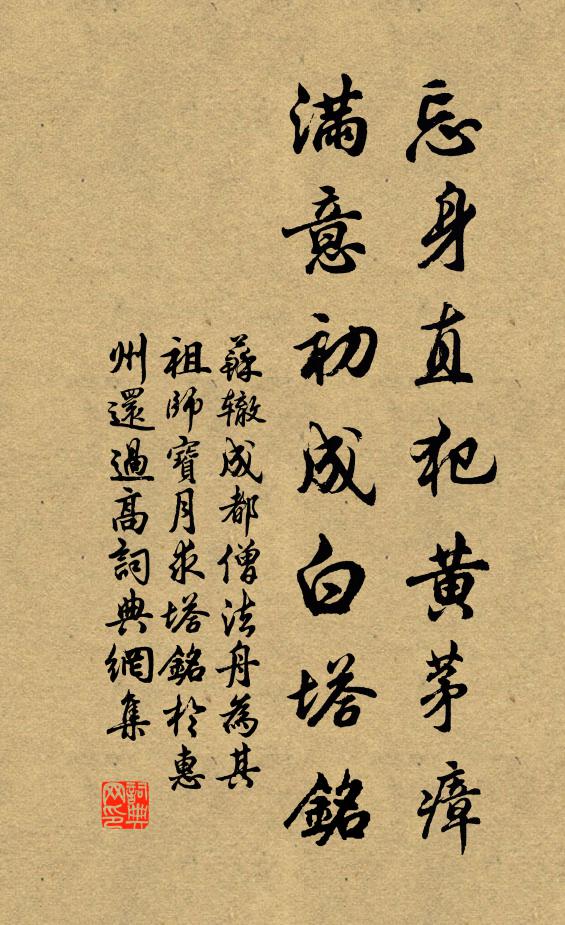 忘身直犯黄茅瘴
滿意初成白塔銘
蘇辙成都僧法舟為其
祖師寶月求塔銘於惠
州還過高詞典網集
詞典网印